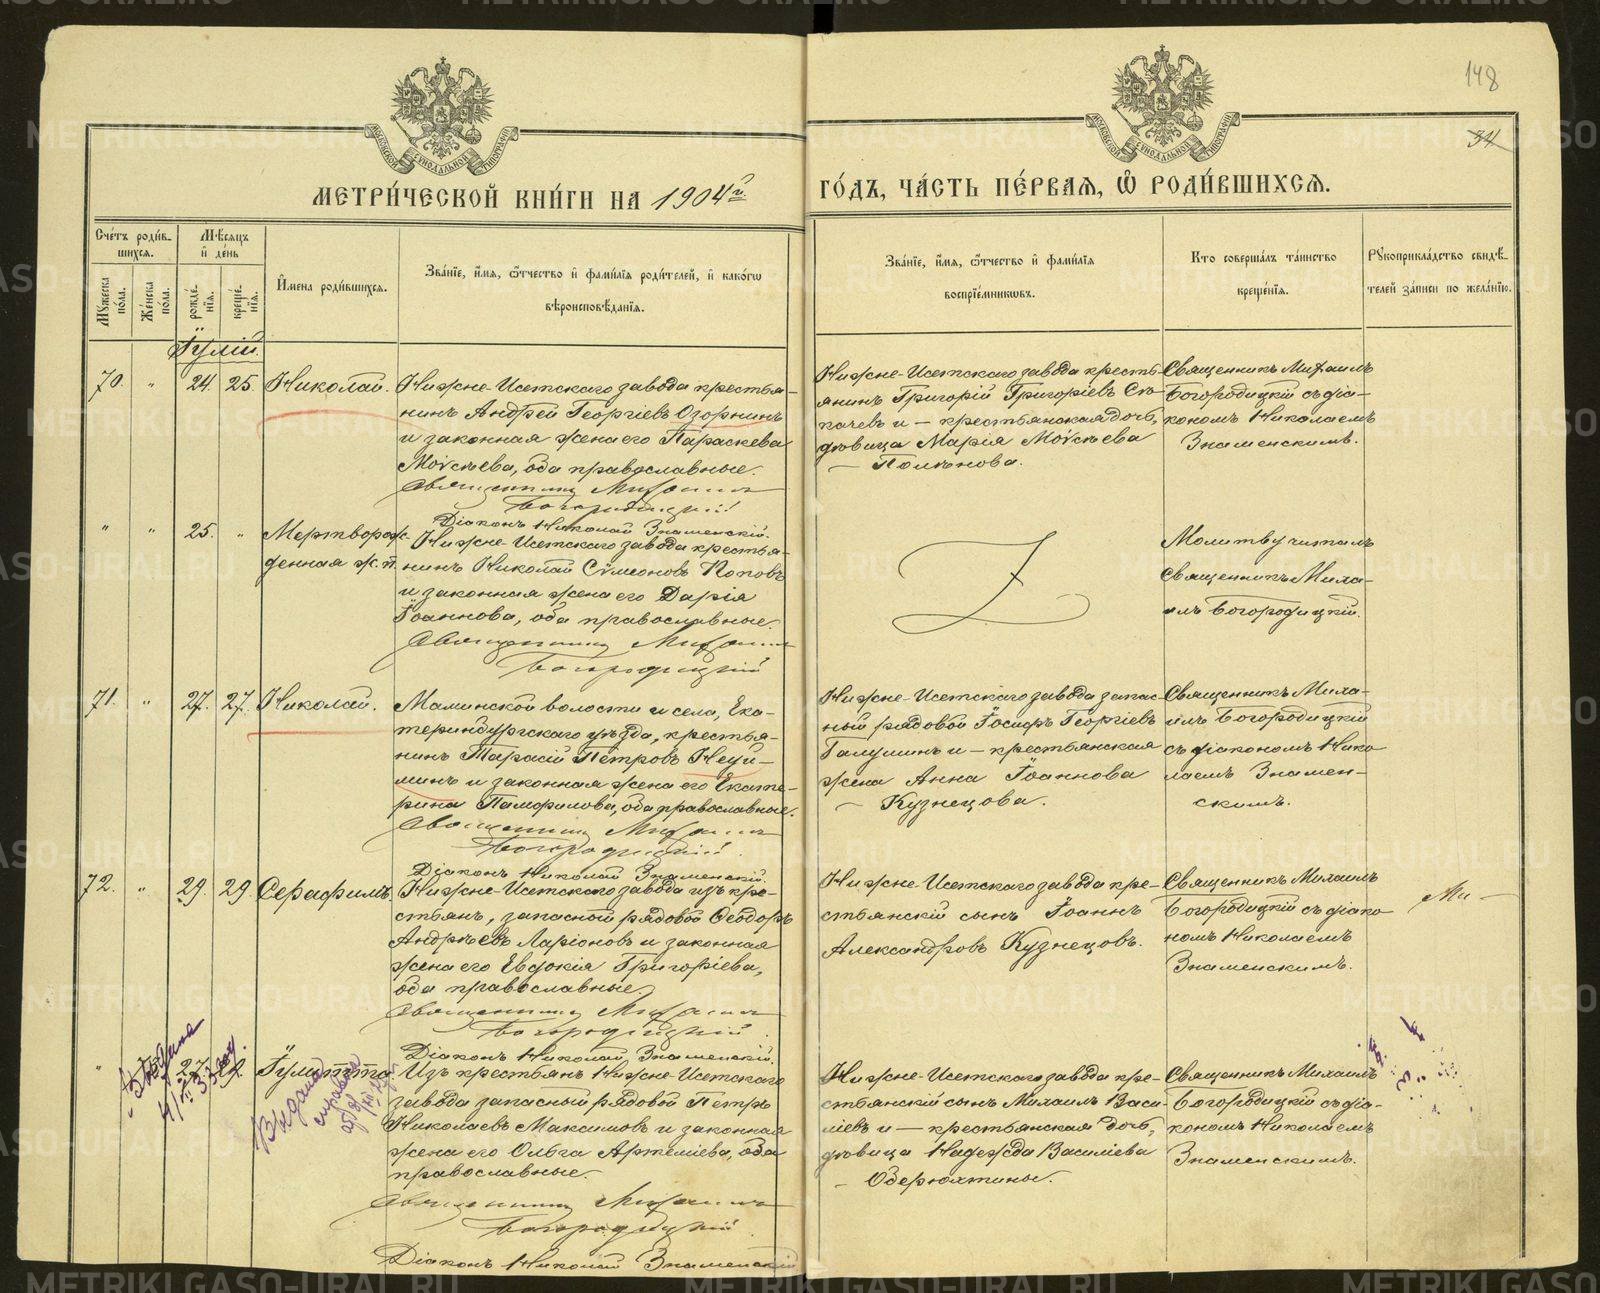 148
34
МЕТРИ́ЧЕСКОЙ КНИ́ГИ НА 1904 г.
ГО́ДЪ, ЧА́СТЬ ПЕ́РВАЯ, Ѡ҆ РОДИ́ВШИХСЯ.
Сче́тъ роди́вшихся.
Мꙋ́жеска по́ла.
Же́нска по́ла.
Мѣ́сяцъ и҆ де́нь
рожде́нїя.
креще́нїя.
И҆мена роди́вшихся.
Зва́нїе, и҆́мя, ѻ҆́тчество и҆ фами́лїя роди́телей, и҆ како́гѡ
вѣроисповѣ́данїя.
Зва́нїе, и҆́мя, ѻ҆́тчество и҆ фами́лїя
воспрїе́мниковъ.
Кто соверша́лъ та́инство
креще́нїя.
Рꙋкоприкла́дство свидѣ́-
телей за́писи по жела́нїю.
Іулій.
70. " 24. 25. Николай.
Нижне-Исетскаго завода крестья-
нинъ Андрей Георгіевъ Озорнинъ
и законная жена его Параскева
Моѵсѣева, оба православные.
Священникъ Михаилъ
Богородицкій
Діаконъ Николай Знаменскій.
Нижне-Исетскаго завода кресть-
янинъ Григорій Григорієвъ Ска-
качевъ и — крестьянская дочь,
дѣвица Марія Моѵсѣева
— Полканова.
Священникъ Михаилъ
Богородицкій съ діа-
кономъ Николаемъ
Знаменскимъ.
" " 25. " Мертворож-
денная ж. п.
Нижне-Исетскаго завода крестья-
нинъ Николай Сѵмеоновъ Поповъ
и законная жена его Дарія
Іоаннова, оба православные.
Священникъ Михаилъ
Богородицкій
Молитву читалъ
священникъ Миха-
илъ Богородицкій.
71. " 27. 27. Николай.
Маминской волости и села, Ека-
теринбургскаго уѣзда, крестья-
нинъ Тарасій Петровъ Неуй-
минъ и законная жена его Екате-
рина Памфилова, оба православные.
Священникъ Михаилъ
Богородицкій
Діаконъ Николай Знаменскій.
Нижне-Исетскаго завода запас-
ный рядовой Іосифъ Георгіевъ
Галушинъ и — крестьянская
жена Анна Іоаннова
— Кузнецова.
Священникъ Миха-
илъ Богородицкій
съ діакономъ Нико-
лаемъ Знамен-
скимъ.
72. " 29. 29. Серафимъ.
Нижне-Исетскаго завода изъ кре-
стьянъ, запасный рядовой Ѳеодоръ
Андреевъ Ларіоновъ и законная
жена его Евдокія Григоріева,
оба православные.
Священникъ Михаилъ
Богородицкій
Діаконъ Николай Знаменскій.
Нижне-Исетскаго завода кре-
стьянскій сынъ Іоаннъ
Александровъ Кузнецовъ.
Священникъ Михаилъ
Богородицкій съ діако-
номъ Николаемъ
Знаменскимъ.
Ми —
Іулитта
Выдана
справка
Изъ крестьянъ Нижне-Исетскаго
завода запасный рядовой Петръ
Николаевъ Максимовъ и законная
жена его Ольга Артеміева, оба
православные.
Священникъ Михаилъ
Богородицкій
Діаконъ Николай Знаменскій
Нижне-Исетскаго завода кре-
стьянскій сынъ Михаилъ Васи-
ліевъ и — крестьянская дочь,
дѣвица Надежда Василіева
— Оберюхтины.
Священникъ Михаилъ
Богородицкій съ діа-
кономъ Николаемъ
Знаменскимъ.
METRIKI.GASO-URAL.RU